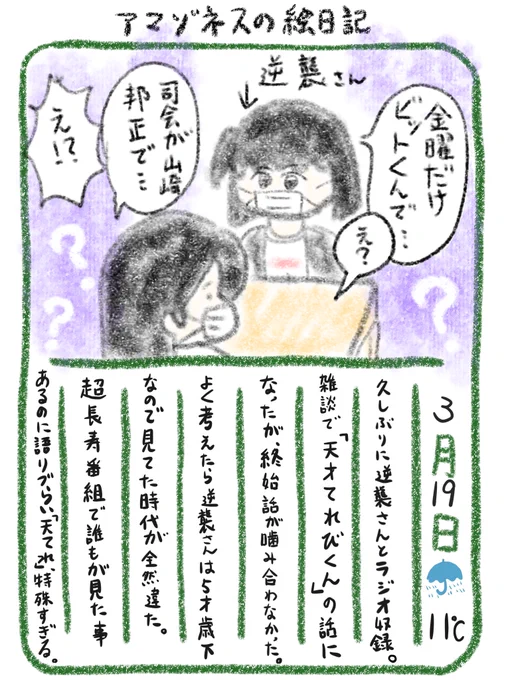 アマゾネスの絵日記
逆襲さん
金曜だけ
ビットくんで…
え？
司会が山崎
邦正で…
え!?
3月19日
11℃
久しぶりに逆襲さんとラジオ収録。
雑談で「天才てれびくん」の話に
なったが、終始話が噛み合わなかった。
よく考えたら逆襲さんは5才歳下
なので見てた時代が全然違た。
超長寿番組で誰もが見た事
あるのに語りづらい「天てれ」特殊すぎる。